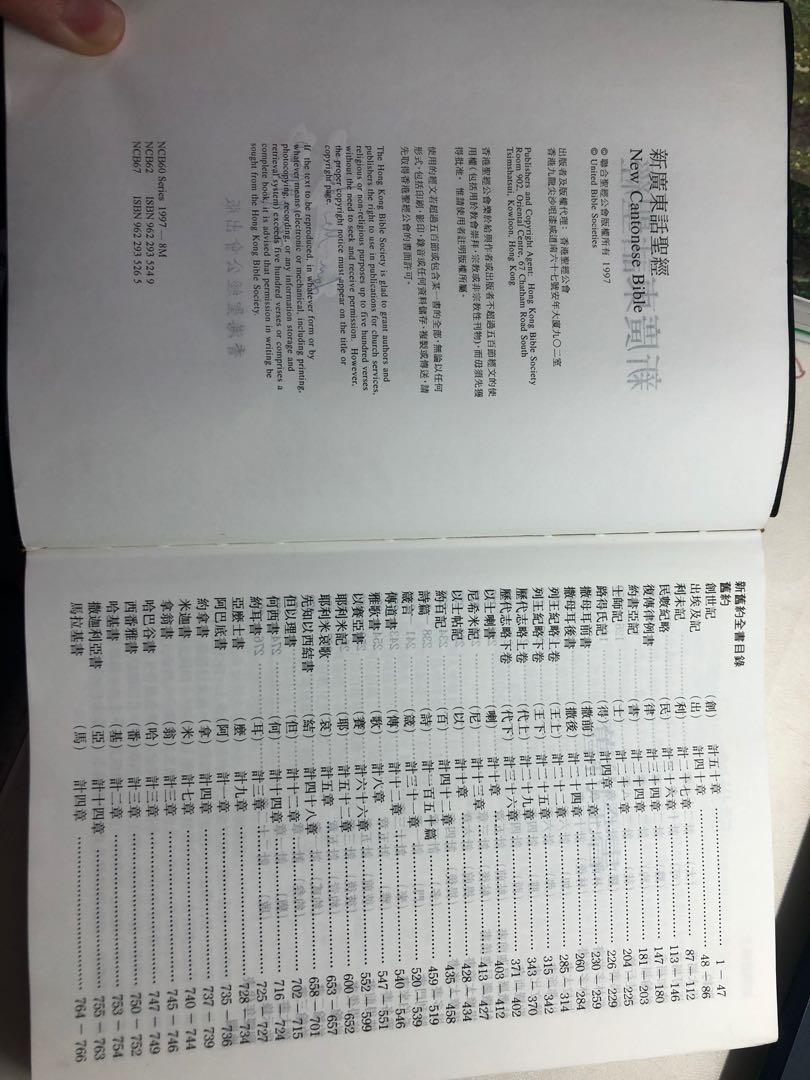 新廣東話聖經
New Cantonese Bible
© 聯合聖經公會版權所有 1997
© United Bible Societies
出版者及版權代理：香港聖經公會
香港九龍尖沙咀漆咸道南六十七號安年大廈九〇二室
Publishers and Copyright Agent: Hong Kong Bible Society
Room 902, Oriental Centre, 67 Chatham Road South
Tsimshatsui, Kowloon, Hong Kong
香港聖經公會樂於給與作者或出版者不超過五百節經文的使
用權（包括用於教會崇拜、宗教或非宗教性刊物），而毋須先獲
得批准。惟請使用者註明版權所屬。
使用的經文若超過五百節或包含某一書的全部，無論以任何
形式，包括印刷、影印、錄音或任何資料儲存、複製或傳送，請
先取得香港聖經公會的書面許可。
The Hong Kong Bible Society is glad to grant authors and
publishers the right to use in publications for church services,
religious or non-religious purposes up to five hundred verses
without the need to seek and receive permission. However,
the proper copyright notice must appear on the title or
copyright page.
If the text to be reproduced, in whatever form or by
whatever means (electronic or mechanical, including printing,
photocopying, recording, or any information storage and
retrieval system) exceeds five hundred verses or comprises a
complete book, it is advised that permission in writing be
sought from the Hong Kong Bible Society.
NCB60 Series 1997—8M
NCB62 ISBN 962 293 524 9
NCB67 ISBN 962 293 526 5
新舊約全書目錄
舊約
創世記 （創） 計五十章 1－47
出埃及記 （出） 計四十章 48－86
利未記 （利） 計二十七章 87－112
民數紀略 （民） 計三十六章 113－146
復傳律例書 （律） 計三十四章 147－180
約書亞記 （書） 計二十四章 181－203
士師記 （士） 計二十一章 204－225
路得氏記 （得） 計四章 226－229
撒母耳前書 （撒前） 計三十一章 230－259
撒母耳後書 （撒後） 計二十四章 260－284
列王紀略上卷 （王上） 計二十二章 285－314
列王紀略下卷 （王下） 計二十五章 315－342
歷代志略上卷 （代上） 計二十九章 343－370
歷代志略下卷 （代下） 計三十六章 371－402
以士喇書 （喇） 計十章 403－412
尼希米記 （尼） 計十三章 413－427
以士帖記 （以） 計十章 428－434
約百記 （百） 計四十二章 435－458
詩篇 （詩） 計一百五十篇 459－519
箴言 （箴） 計三十一章 520－539
傳道書 （傳） 計十二章 540－546
雅歌書 （歌） 計八章 547－551
以賽亞書 （賽） 計六十六章 552－599
耶利米記 （耶） 計五十二章 600－652
耶利米哀歌 （哀） 計五章 653－657
先知以西結書 （結） 計四十八章 658－701
但以理書 （但） 計十二章 702－715
何西書 （何） 計十四章 716－724
約耳書 （耳） 計三章 725－727
亞麼士書 （麼） 計九章 728－734
阿巴底書 （阿） 計一章 735－736
約拿書 （拿） 計四章 737－739
米迦書 （米） 計七章 740－744
拿翁書 （翁） 計三章 745－746
哈巴谷書 （哈） 計三章 747－749
西番雅書 （番） 計三章 750－752
哈基書 （基） 計二章 753－754
撒迦利亞書 （亞） 計十四章 755－763
馬拉基書 （馬） 計四章 764－766